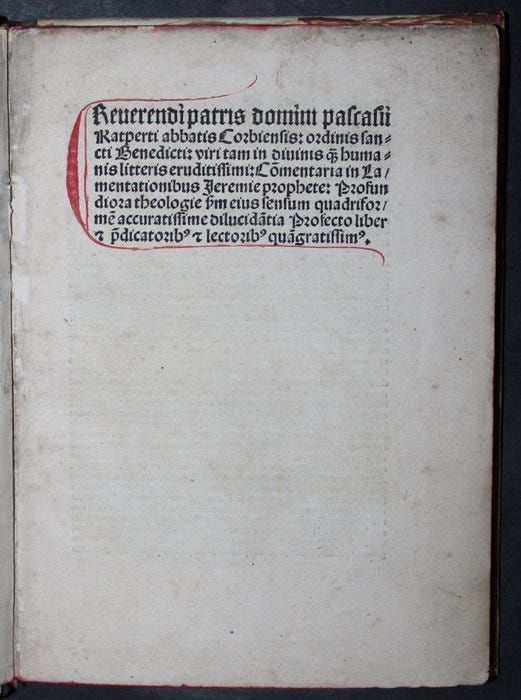 Reuerendi patris domini pascasii
Ratperti abbatis Corbiensis: ordinis san⸗
cti Benedicti: viri tam in diuinis q̃ȝ huma⸗
nis litteris eruditissimi: Cõmentaria in La/
mentationibus Jeremie prophete: Profun
diora theologie ẜm eius sensum quadrifor/
mẽ accuratissime dilucidãtia Profecto liber
⁊ p̃dicatoribꝰ ⁊ lectoribꝰ quãgratissimꝰ.